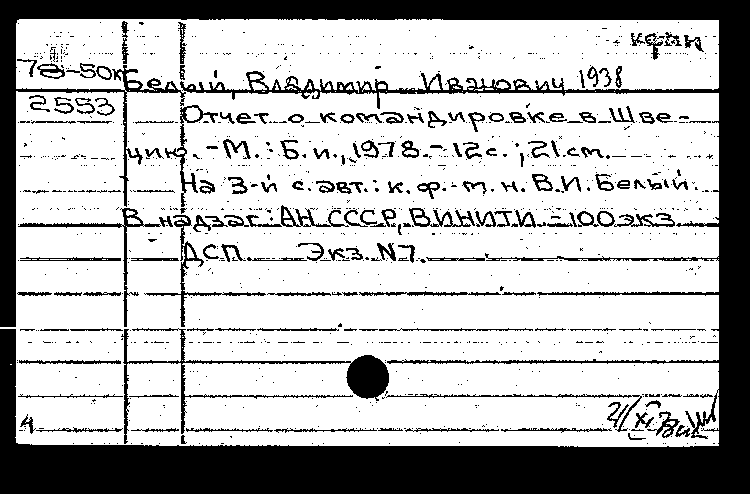 крин
78-50к Белый, Владимир Иванович 1938
2553 Отчет о командировке в Шве-
цию. - М.: Б.и., 1978. - 12с.; 21см.
На 3-й с. авт.: к. ф.-м. н. В.И. Белый.
В надзаг.: АН СССР, ВИНИТИ. - 100экз.
ДСП. Экз. N7.
21/XI
4